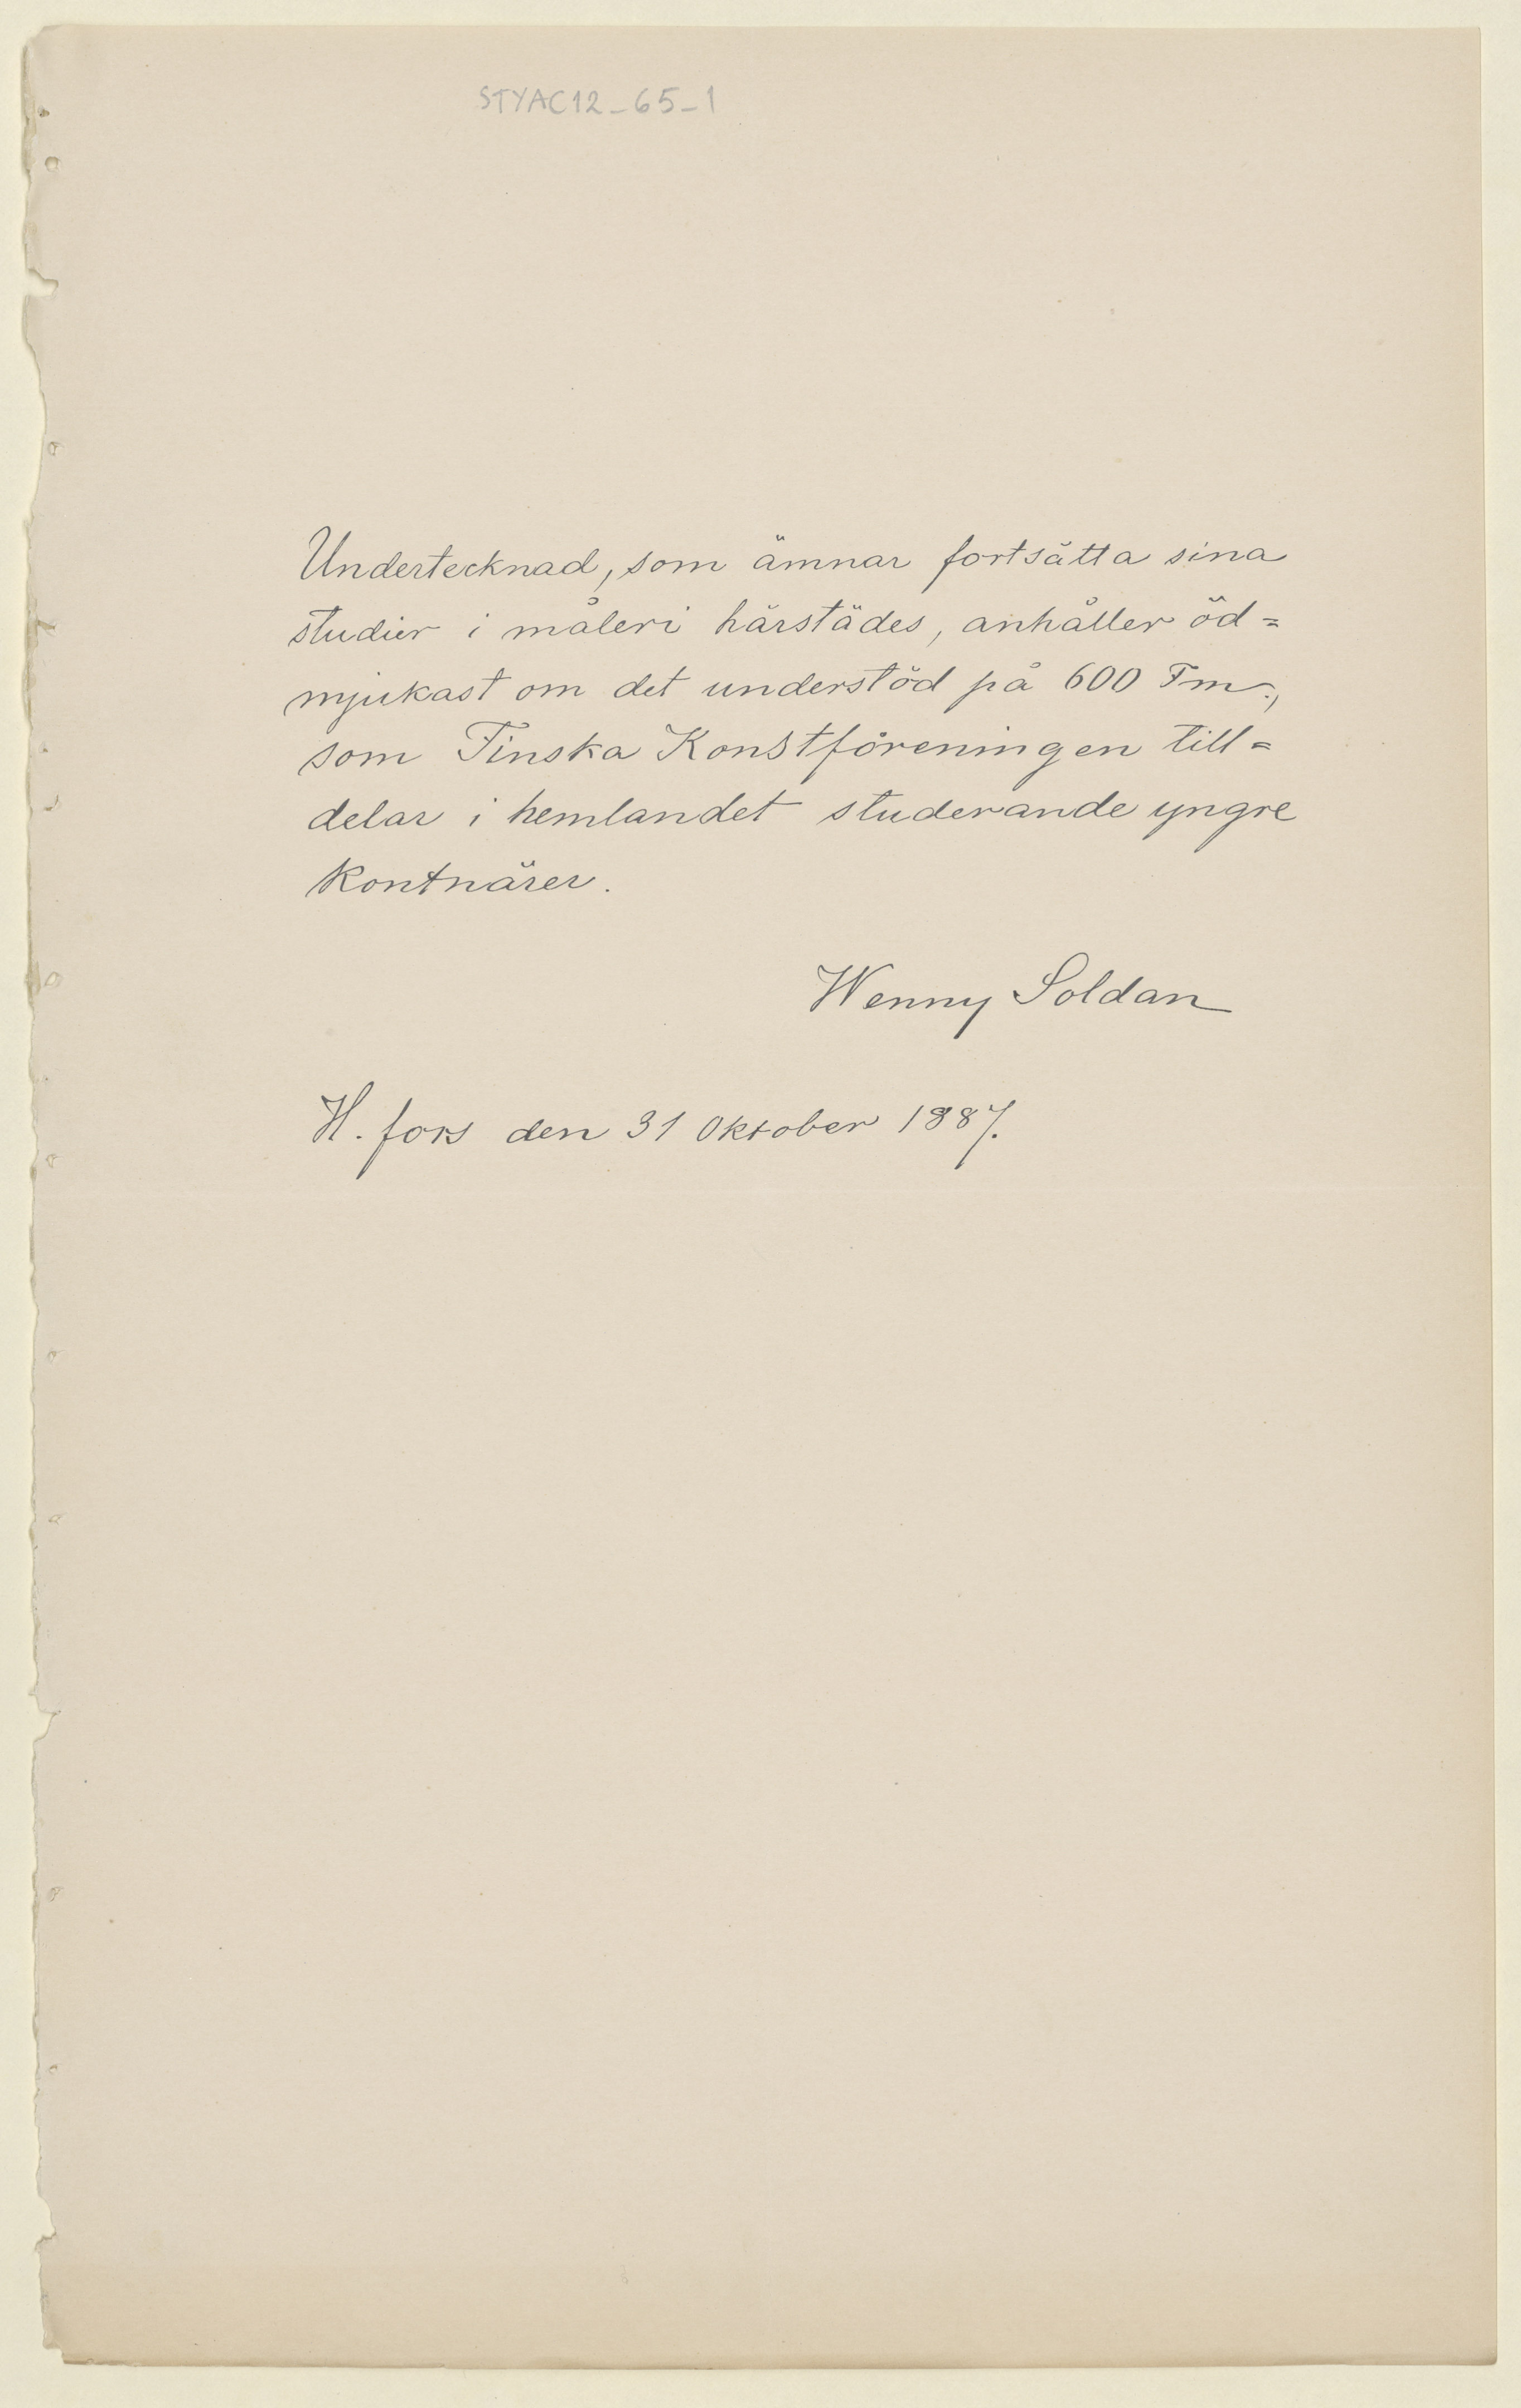 STYAC12_65_1
Undertecknad, som ämnar fortsätta sina
studier i måleri härstädes, anhåller öd=
mjukast om det understöd på 600 Fm.,
som Finska Konstföreningen till=
delar i hemlandet studerande yngre
kontnärer.
Wenny Soldan
H.fors den 31 Oktober 1887.